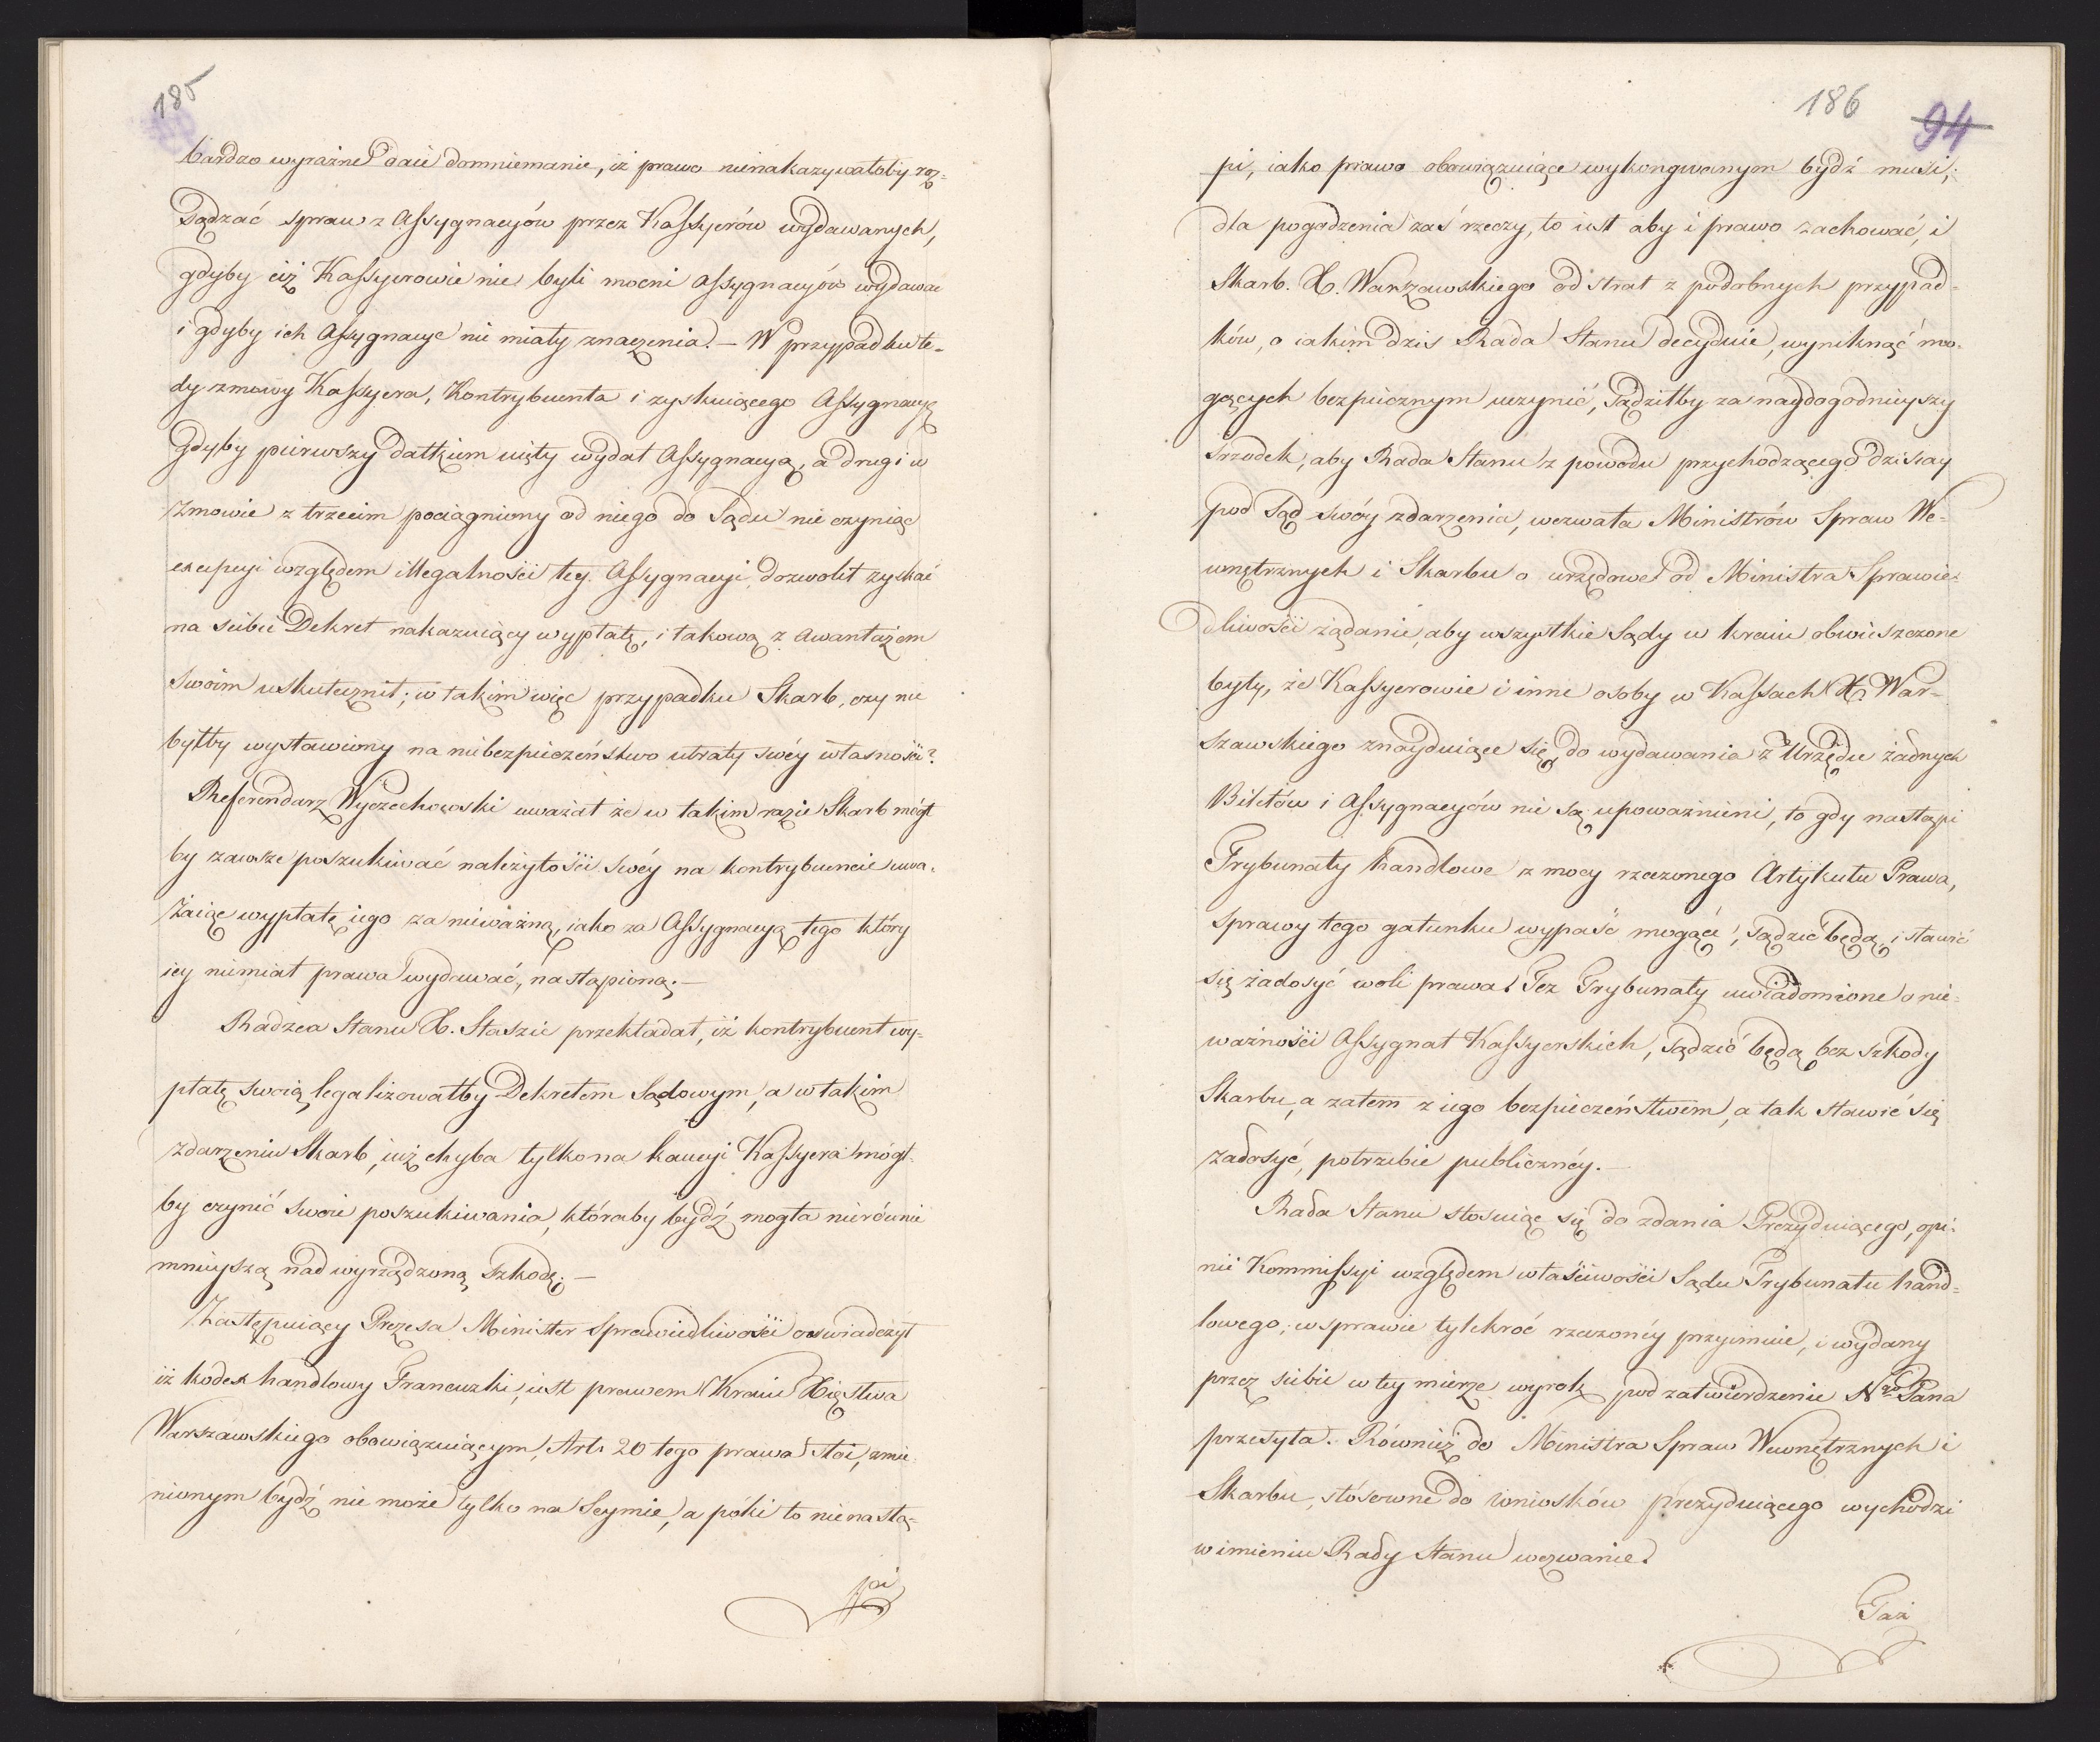 185
bardzo wyraźne daie domniemanie, iż prawo nienakazywałoby roz-
sądzać spraw z Assygnacyów przez Kassyerów wydawanych,
gdyby ciż Kassyerowie nie byli mocni Assygnacyów wydawać
i gdyby ich Assygnacye nie miały znaczenia. — W przypadku te-
dy zmowy Kassyera, Kontrybuenta i zyskuiącego Assygnacyę
gdyby pierwszy datkiem uięty wydał Assygnacyą, a drugi w
zmowie z trzecim pociągniony od niego do Sądu nie czyniąc
excepcyi względem illegalności tey Assygnacyi dozwolił zyskać
na siebie Dekret nakazuiący wypłatę, i takową z awantażem
swoim uskutecznił; w takim więc przypadku Skarb, czy nie
byłby wystawiony na niebezpieczeństwo utraty swéy własności?
Referendarz Wyczechowski uważał że w takim razie Skarb mógł
by zawsze poszukiwać należytości swéy na kontrybuencie uwa-
żaiąc wypłatę iego za nieważną, iako za Assygnacyą tego który
iey niemiał prawa wydawać, nastąpioną. —
Radzca Stanu X. Staszic przekładał, iż kontrybuent wy-
płatę swoią legalizowałby Dekretem Sądowym, a w takim
zdarzeniu Skarb, iuż chyba tylko na kaucyi Kassyera mógł-
by czynić swoie poszukiwania, któraby bydź mogła nierównie
mnieyszą nad wyrządzoną szkodę. —
Zastępuiący Prezesa Minister Sprawiedliwości oswiadczył
iż kodex handlowy Francuzki, iest prawem Kraiu Xięstwa
Warszawskiego obowiązuiącym, Art. 20 tego prawa stoi, zmie-
nionym bydź nie może tylko na Seymie, a póki to nie nastą-
pi
186
94
pi, iako prawo obowiązuiące wykonywanym bydź musi;
dla pogodzenia zaś rzeczy, to iest aby i prawo zachować, i
Skarb. X. Warszawskiego od strat z podobnych przypad-
ków, o iakim dzis Rada Stanu decyduie, wyniknąć mo-
gących bezpiecznym uczynić, sądziłby za naydogodnieyszy
srzodek, aby Rada Stanu z powodu przychodzącego dzisiay
pod Sąd swóy zdarzenia, wezwała Ministrów Spraw We-
wnętrznych i Skarbu o urzędowe od Ministra Sprawie-
dliwości żądanie, aby wszystkie Sądy w kraiu obwieszczone
były, że Kassyerowie i inne osoby w Kassach X. War-
szawskiego znayduiące się, do wydawania z Urzędu żadnych
Biletów i Assygnacyów nie są upoważnieni, to gdy nastąpi
Trybunały handlowe z mocy rzeczonego Artykułu Prawa,
sprawy tego gatunku wypaść mogące, sądzić będą, i stanie
się zadosyć woli prawa. Też Trybunały uwiadomione o nie-
ważności Assygnat Kassyerskich, sądzić będą bez szkody
Skarbu, a zatem z iego bezpieczeństwem, a tak stawie się
zadosyć, potrzebie publicznéy. —
Rada Stanu stosuiąc się do zdania Prezyduiącego, opi-
nie Kommissyi względem własciwości Sądu Trybunału hand-
lowego, w sprawie tylekroć rzeczonéy przyimuie, i wydany
przez siebie w tey mierze wyrok pod zatwierdzenie N° Pana
przesyła. Również do Ministra Spraw Wewnętrznych i
Skarbu, stósownie do wniosków prezyduiącego wychodzi
w imieniu Rady Stanu wezwanie.
Taż